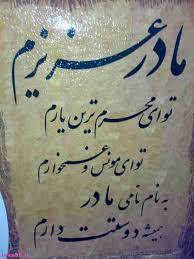 مادر عزیزم
توای محرم ترین یارم
توای مونس و غمخوارم
به نام نامی مادر
همیشه دوستت دارم